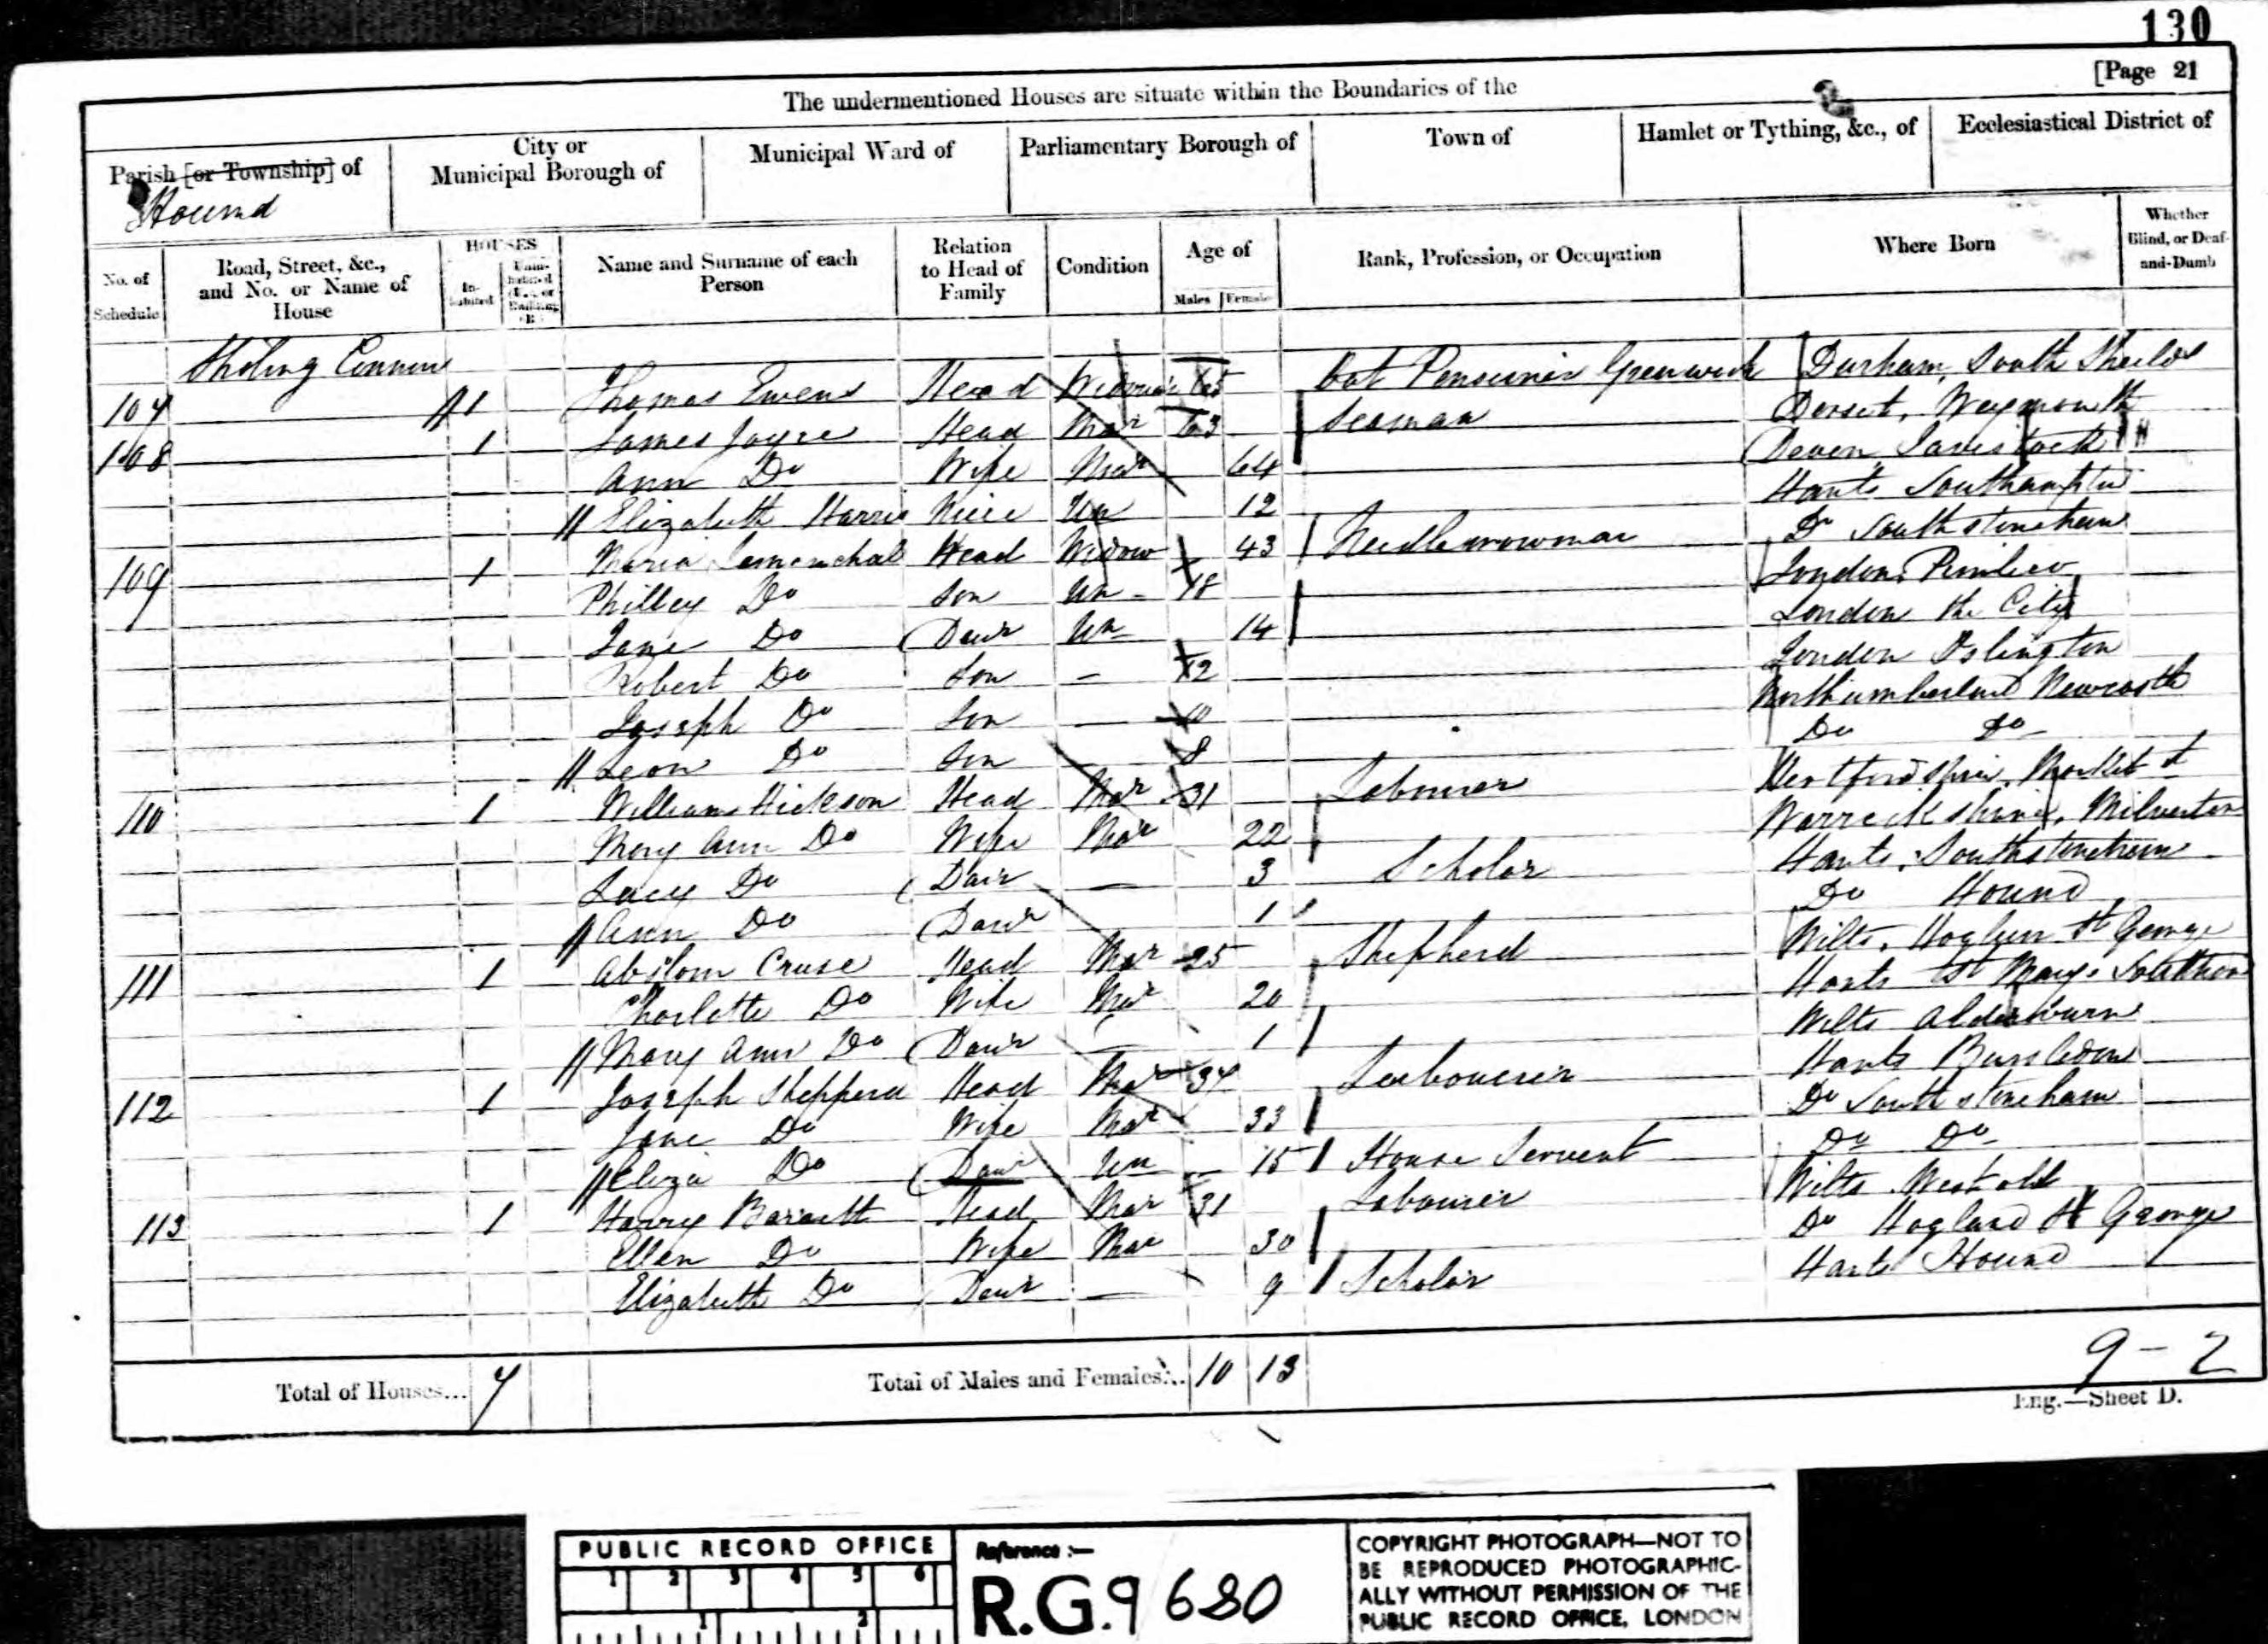 130
[Page 21
The undermentioned Houses are situate within the Boundaries of the
Parish [or Township] of
City or Municipal Borough of
Municipal Ward of
Parliamentary Borough of
Town of
Hamlet or Tything, &c., of
Ecclesiastical District of
Hound
No. of Schedule
Road, Street, &c., and No. or Name of House
HOUSES
In-habited
Name and Surname of each Person
Relation to Head of Family
Condition
Age of
Males
Females
Rank, Profession, or Occupation
Where Born
Whether Blind, or Deaf-and-Dumb
Sholing Common
107 1 Thomas Ewens Head Widower 65 Out Pensioner Greenwich Durham, South Sheilds
108 1 James Joyce Head Mar 63 Seaman Dorset, Weymouth
Ann Do Wife Mar 64 Devon Tavistock
Elizabeth Harris Niece Un 12 Hants Southampton
109 1 Maria Head Widow 43 Needlewowman Do Southstoneham
Philley Do Son Un 18 London, Pimlico
Jane Do Daur Un 14 London the City
Robert Do Son - 12 London Islington
Joseph Do Son - 10 Northumberland Newcastle
Leon Do Son 8 Do Do
110 1 William Hickson Head Mar 31 Labourer Hertfordshire, Market St
Mary Ann Do Wife Mar 22 Warrickshire, Milverton
Lucy Do Daur - 3 Scholar Hants, Southstoneham
Ann Do Daur 1 Do Hound
111 1 Abslom Cruse Head Mar 25 Shepherd Wilts, St George
Charlotte Do Wife Mar 20 Hants St Marys
Mary Ann Do Daur - 1 Wilts Alderburn
112 1 Joseph Shepperd Head Mar 37 Labourer Hants Bursledon
Jane Do Wife Mar 33 Do South stoneham
Eliza Do Daur Un 15 House Servent Do Do
113 1 Harry Barnett Head Mar 31 Labourer Wilts
Ellen Do Wife Mar 30 Do St George
Elizabeth Do Daur - 9 Scholar Hants Hound
Total of Houses... 7
Total of Males and Females... 10 13
9 - 2
Eng.—Sheet D.
PUBLIC RECORD OFFICE
1 2 3 4 5 6
1 2
Reference :—
R.G.9 680
COPYRIGHT PHOTOGRAPH—NOT TO
BE REPRODUCED PHOTOGRAPHIC-
ALLY WITHOUT PERMISSION OF THE
PUBLIC RECORD OFFICE, LONDON